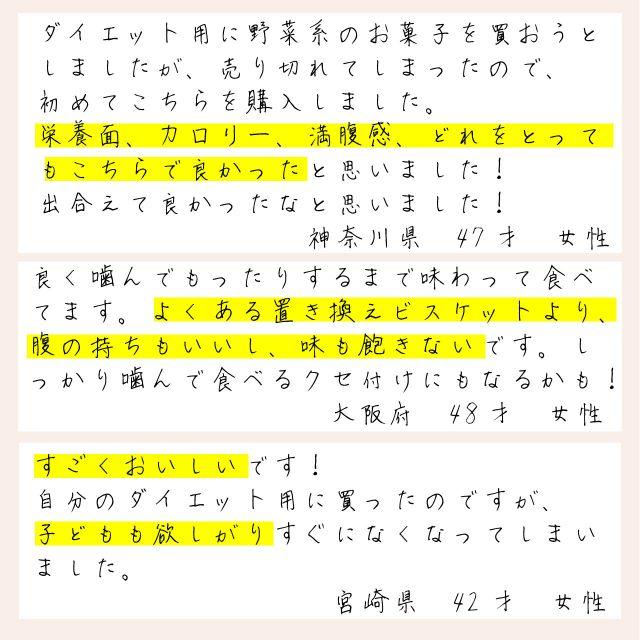 ダイエット用に野菜系のお菓子を買おうと
しましたが、売り切れてしまったので、
初めてこちらを購入しました。
栄養面、カロリー、満腹感、どれをとって
もこちらで良かったと思いました！
出合えて良かったなと思いました！
神奈川県　47才　女性
良く噛んでもったりするまで味わって食べ
てます。よくある置き換えビスケットより、
腹の持ちもいいし、味も飽きないです。し
っかり噛んで食べるクセ付けにもなるかも！
大阪府　48才　女性
すごくおいしいです！
自分のダイエット用に買ったのですが、
子どもも欲しがりすぐになくなってしまい
ました。
宮崎県　42才　女性